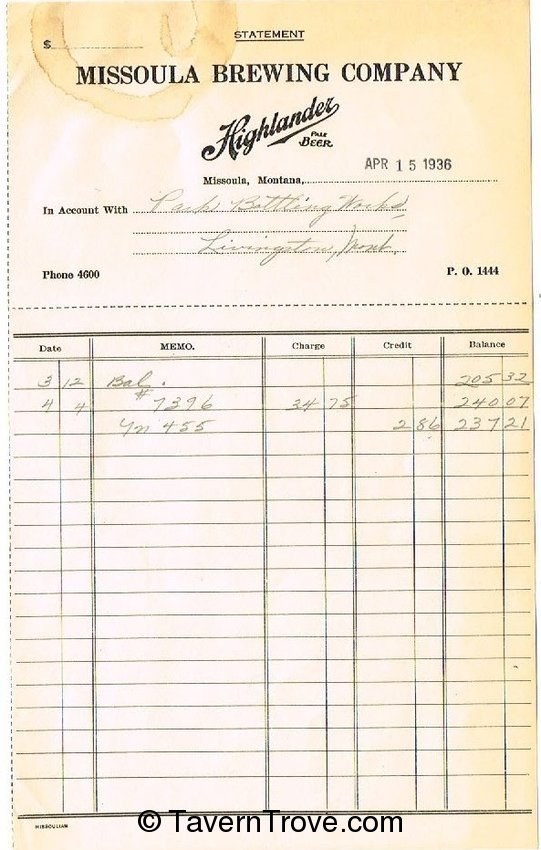 STATEMENT
$
MISSOULA BREWING COMPANY
Highlander
PALE
BEER
APR 15 1936
Missoula, Montana,
In Account With Park Bottling Works
Livingston, Mont.
Phone 4600 P. O. 1444
Date MEMO. Charge Credit Balance
3 12 Bal. 205 32
4 4 #7396 34 75 240 07
455 2 86 237 21
MISSOULIAN
© TavernTrove.com